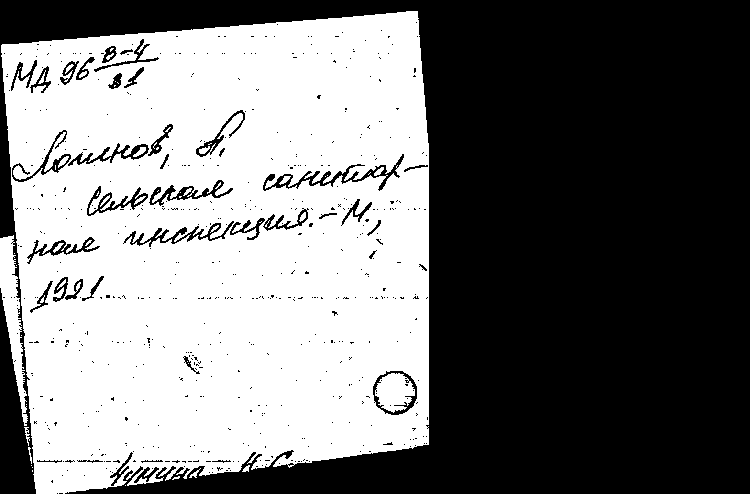 МД 96 В-4
31
Логинов, П.
Сельская санитар-
ная инспекция. – М.,
1921.
Н. С.